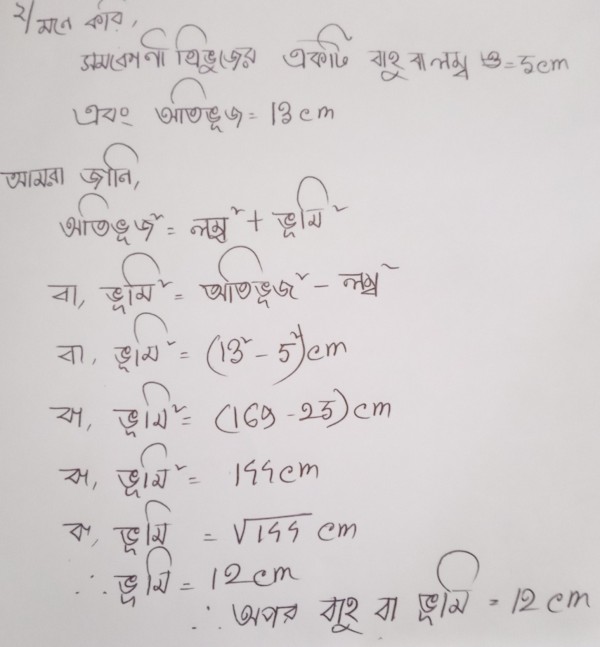 ২/ মনে করি,
সমকোণী ত্রিভুজের একটি বাহু বা লম্ব = 5cm
এবং অতিভূজ = 13cm
আমরা জানি,
অতিভূজ² = লম্ব² + ভূমি²
বা, ভূমি² = অতিভূজ² - লম্ব²
বা, ভূমি² = (13² - 5²)cm
বা, ভূমি² = (169 - 25)cm
বা, ভূমি² = 144cm
বা, ভূমি = √144 cm
∴ ভূমি = 12cm
∴ অপর বাহু বা ভূমি = 12cm